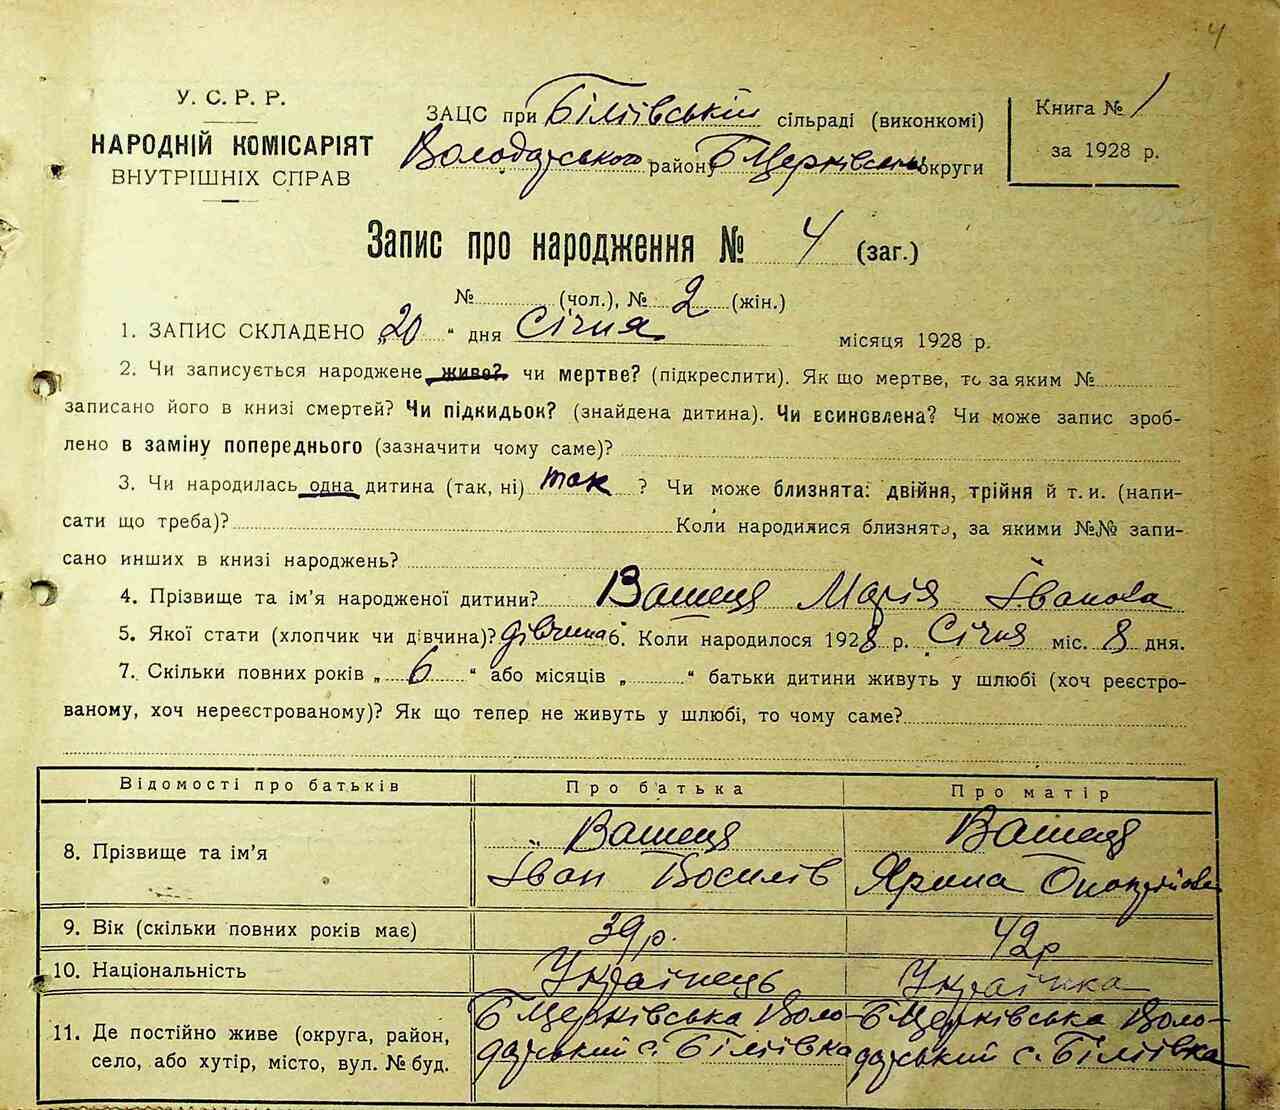 4
У. С. Р. Р.
НАРОДНІЙ КОМІСАРІЯТ
ВНУТРІШНІХ СПРАВ
ЗАЦС при Біліївській сільраді (виконкомі)
Володарського району Б Церківськ округи
Книга № 1
за 1928 р.
Запис про народження № 4 (заг.)
№ (чол.), № 2 (жін.)
1. ЗАПИС СКЛАДЕНО „20“ дня Січня місяця 1928 р.
2. Чи записується народжене живе? чи мертве? (підкреслити). Як що мертве, то за яким №
записано його в книзі смертей? Чи підкидьок? (знайдена дитина). Чи всиновлена? Чи може запис зроб-
лено в заміну попереднього (зазначити чому саме)?
3. Чи народилась одна дитина (так, ні) так ? Чи може близнята: двійня, трійня й т. и. (напи-
сати що треба)? Коли народилися близнята, за якими №№ запи-
сано инших в книзі народжень?
4. Прізвище та ім’я народженої дитини? Вашеця Марія Іванова
5. Якої стати (хлопчик чи дівчина)? дівчина 6. Коли народилося 1928 р. Січня міс. 8 дня.
7. Скільки повних років „6“ або місяців „ “ батьки дитини живуть у шлюбі (хоч реєстро-
ваному, хоч нереєстрованому)? Як що тепер не живуть у шлюбі, то чому саме?
Відомості про батьків Про батька Про матір
8. Прізвище та ім’я Вашеця Вашеця
Іван Василів Ярина
9. Вік (скільки повних років має) 39 р. 42 р
10. Національність Українець Українка
11. Де постійно живе (округа, район,
село, або хутір, місто, вул. № буд.
Б Церківська Воло- Б Церківська Воло-
дарський с. Біліївка дарський с. Біліївка